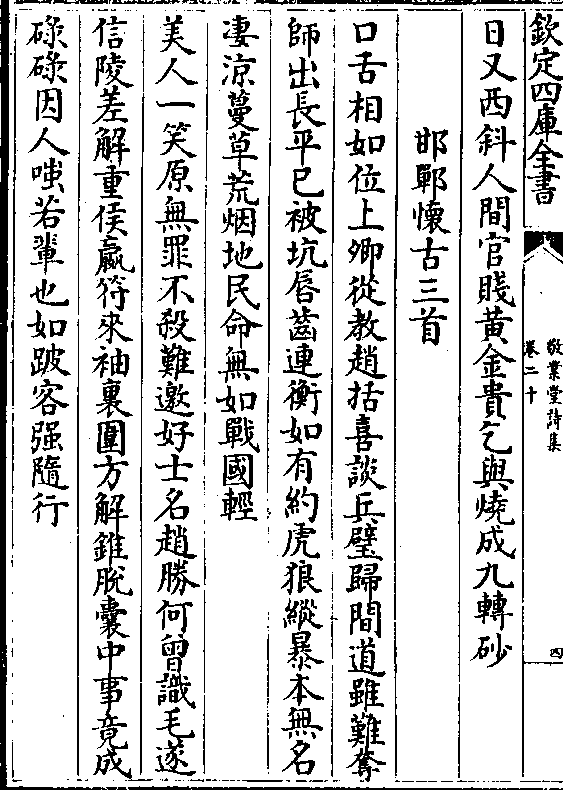 欽定四庫全書
敬業堂詩集
卷二十
四
日又西斜人間官賤黃金貴乞與燒成九轉砂
邯鄲懷古三首
口舌相如位上卿從教趙括喜談兵璧歸間道雖難奪
師出長平已被坑唇齒連衡如有約虎狼縱暴本無名
凄涼蔓草荒烟地民命無如戰國輕
美人一笑原無罪不殺難邀好士名趙勝何曾識毛遂
信陵差解重侯嬴符來袖裏圍方解錐脫囊中事竟成
碌碌因人嗤若輩也如跛客强隨行